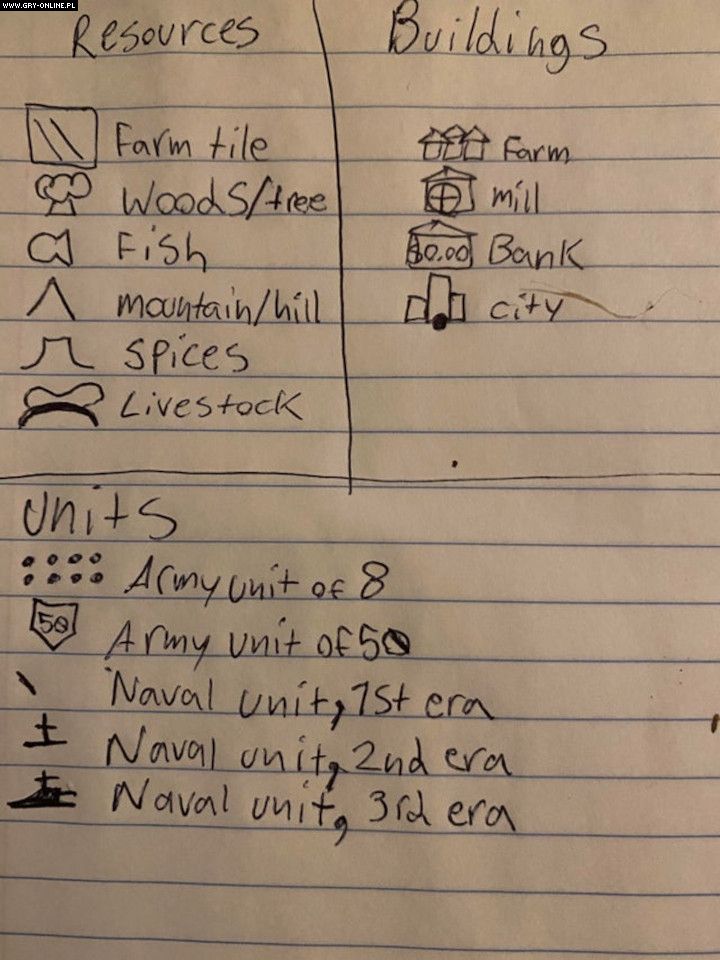 WWW.GRY-ONLINE.PL
Resources
Farm tile
Woods/tree
Fish
mountain/hill
Spices
Livestock
Buildings
Farm
mill
$0.00 Bank
city
Units
Army unit of 8
50 Army unit of 50
Naval unit, 1st era
Naval unit, 2nd era
Naval unit, 3rd era